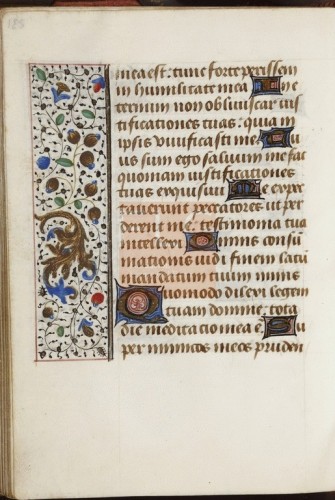 185
mea est: tunc forte perissem
in humilitate mea In e
ternum non obliviscar ius
tificationes tuas: quia in
ipsis vivificasti me Tu
us sum ego salvum me fac
quoniam iustificationes
tuas exquisivi Me expec
taverunt peccatores ut per
derent me: testimonia tua
intellexi Omnis consu
mationis vidi finem latu
mandatum tuum nimis
Quomodo dilexi legem
tuam domine: tota
die meditatio mea e Su
per inimicos meos pruden